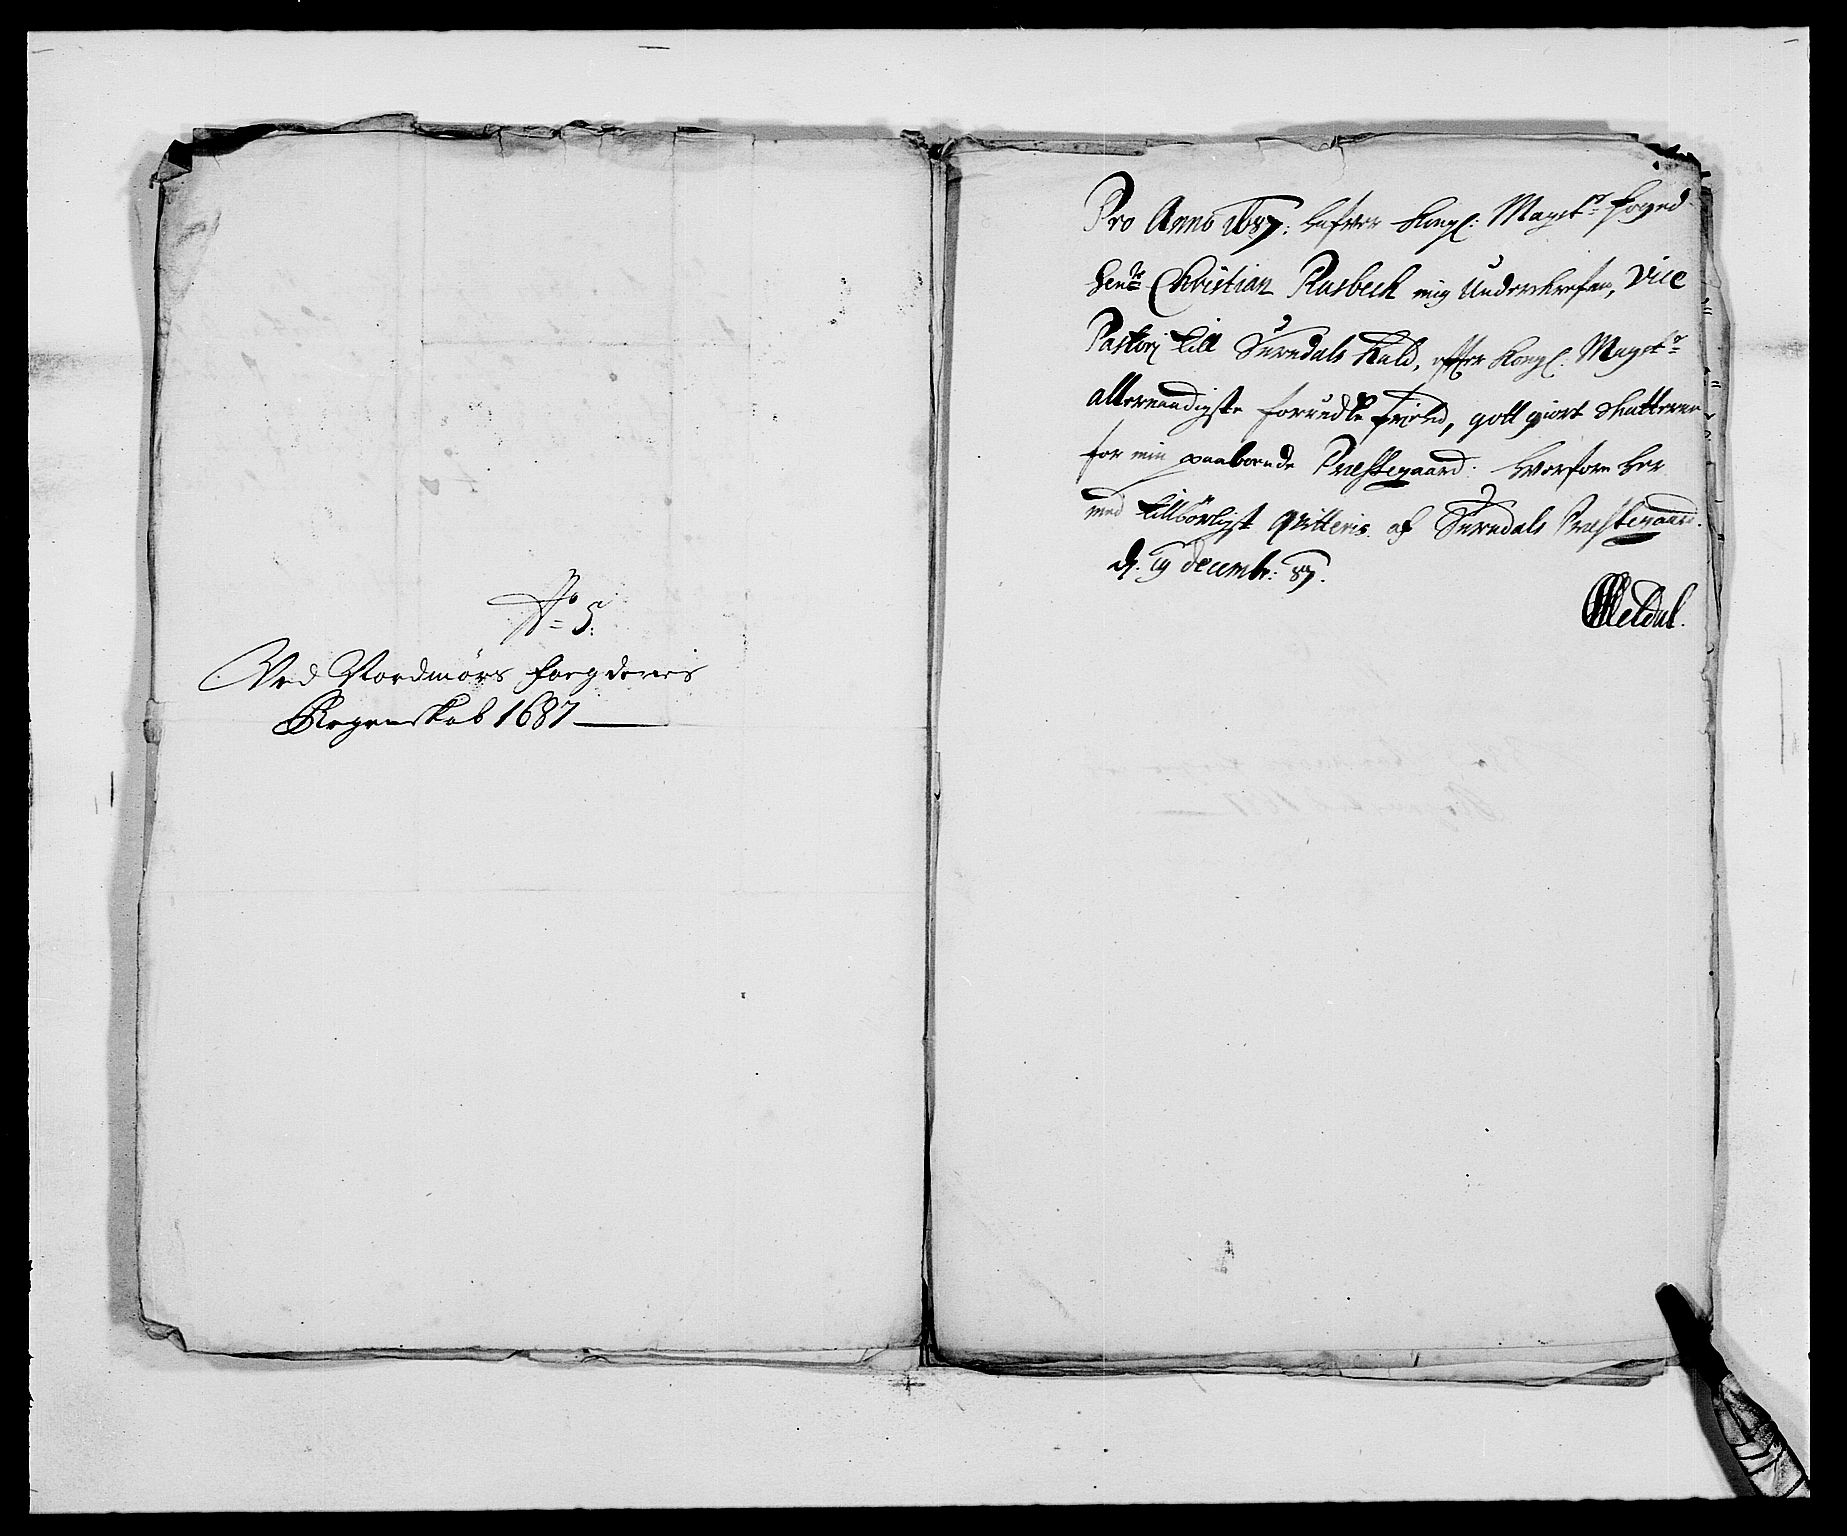 No 5.
Ved Nordmørs Fogderies
Regenskab 1687
Pro Anno 1687: hafver Kongl: Mayts foged
Sen:r Christian Rusbech mig Underskrefen, Vice
Pastori till Surndals Kald, efter Kongl: Mayts
allernaadigste forundte friehed, gott giort skatterne
for min paaboende Præstegaard. hvorfore her
med tillbørligst qvitteris. af Surndals Præstegaard.
d: 19 decembr: 87.
Meldal.